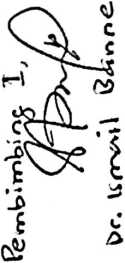 Pembimbing I,
Dr. Ismail Banne